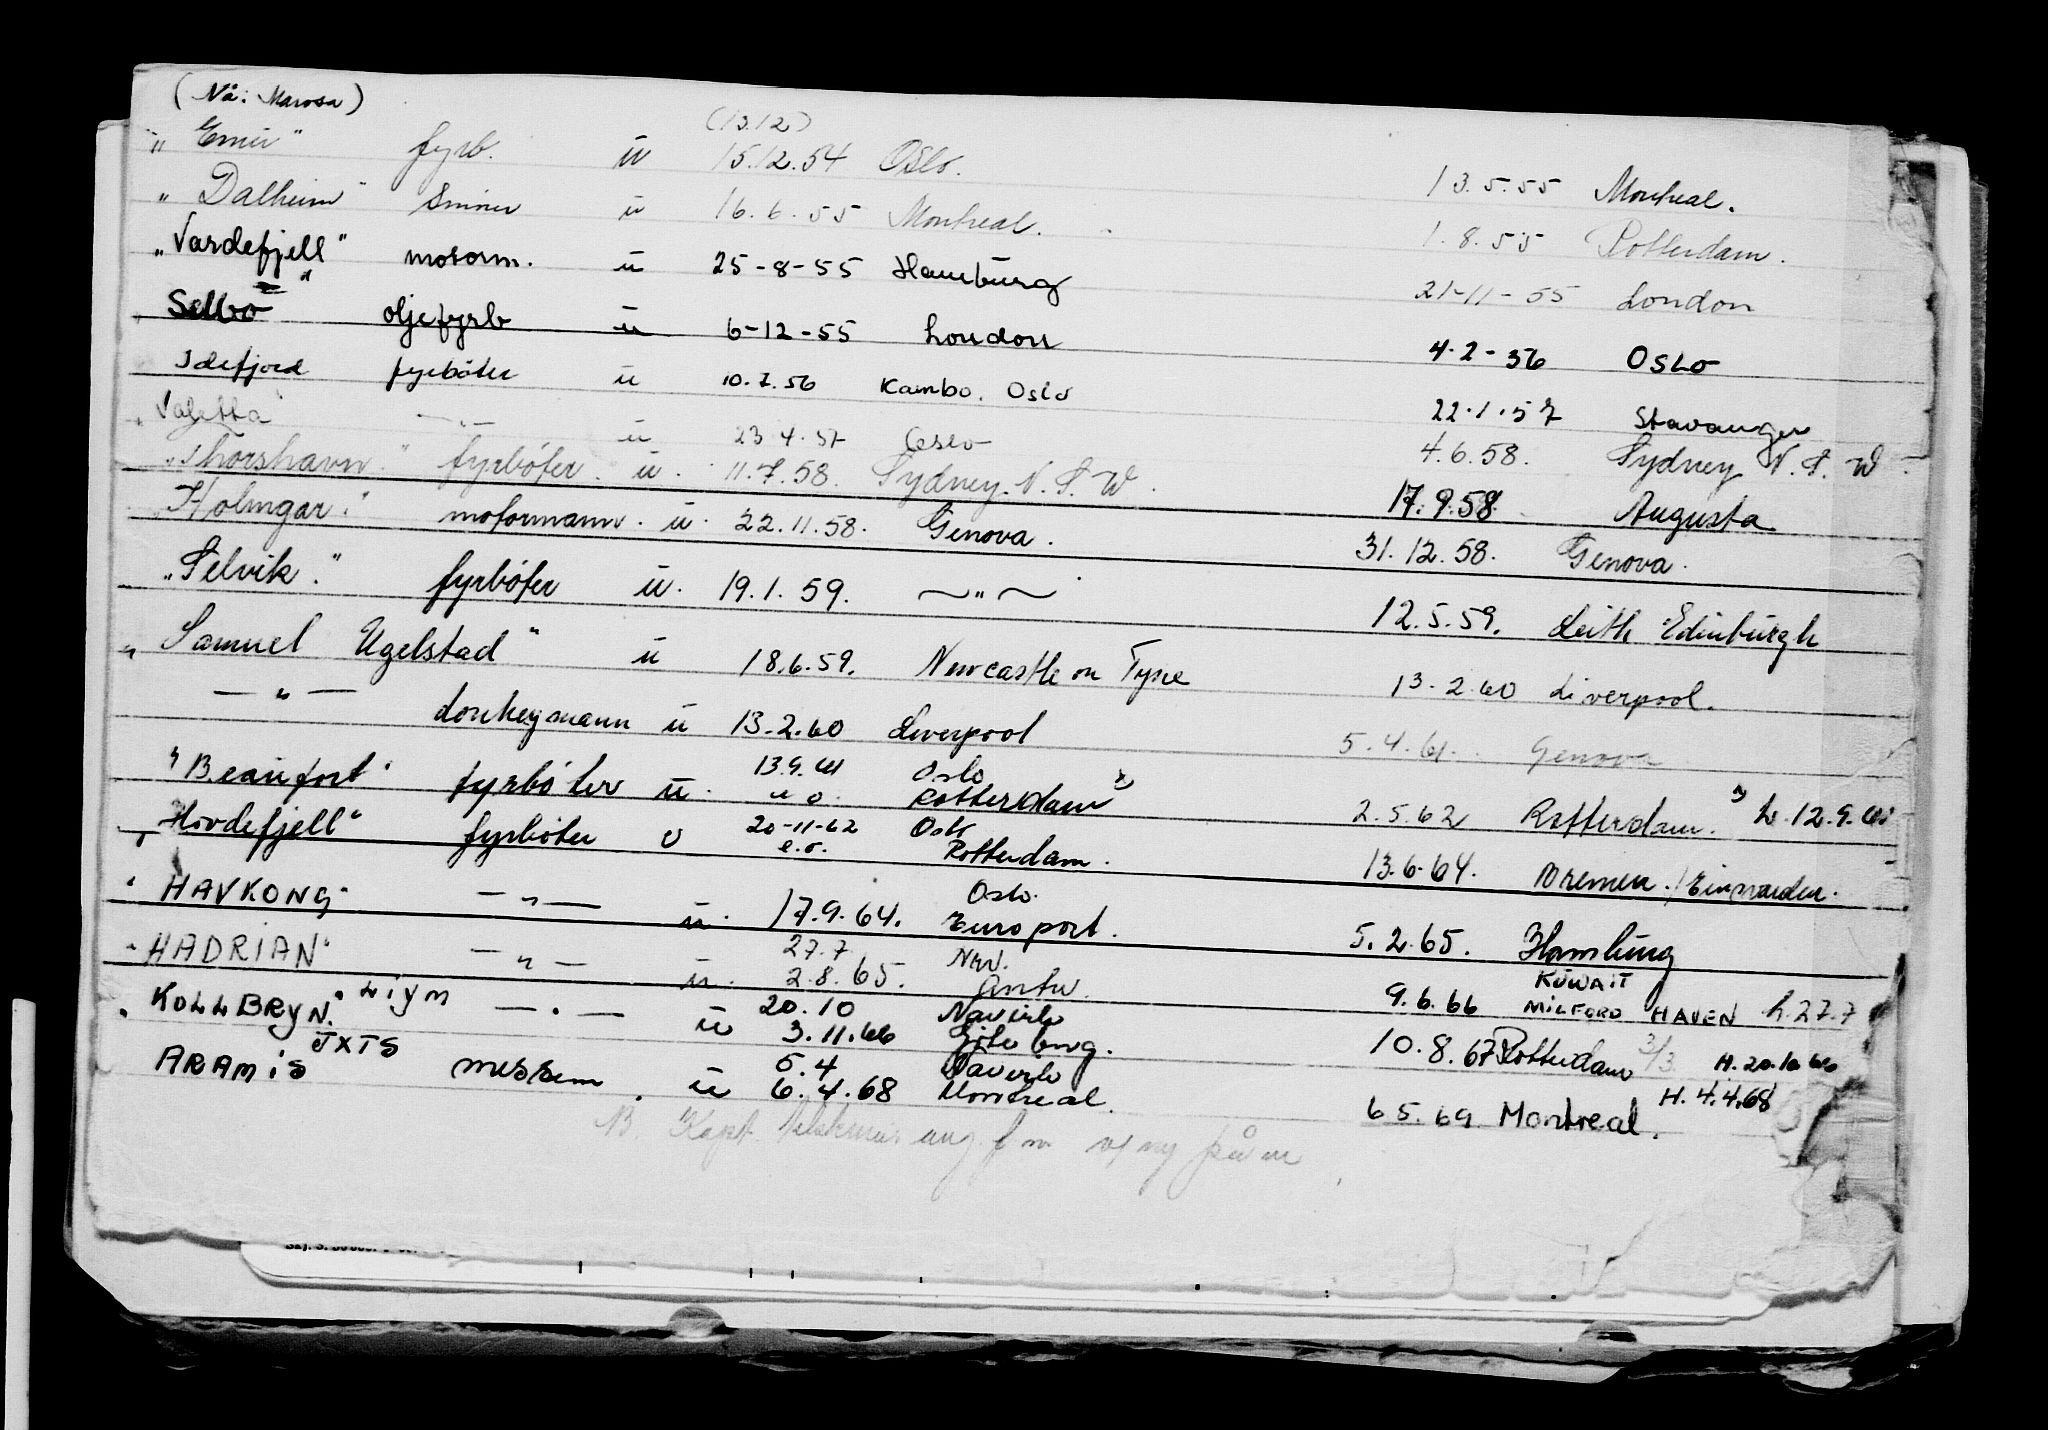 (Nå: Marosa)
(13.12)
"Emir" fyrb. u 15.12.54 Oslo. 13.5.55 Montreal.
"Dalheim" Smører u 16.6.55 Montreal. 1.8.55 Rotterdam.
"Vardefjell" motorm. u 25-8-55 Hamburg 21-11-55 London
Selbo" oljefyrb u 6-12-55 London 4-2-56 OSLO
Idefjord fyrbøter u 10.7.56 Kambo. Oslo 22.1.57 Stavanger
"Valetta" —"— u 23 4.57 Oslo 4.6.58. Sydney N.S.W.
"Thorshavn." fyrbøter. u. 11.7.58. Sydney. N.S.W. 17.9.58. Augusta
"Holmgar." motormann. u. 22.11.58. Genova. 31.12.58. Genova.
"Selvik." fyrbøter u. 19.1.59. —"— 12.5.59. Leith Edinburgh
"Samuel Ugelstad" u 18.6.59. Newcastle on Tyne 13.2.60 Liverpool.
—"— donkeymann u 13.2.60 Liverpool 5.4.61. Genova
13.9.61 Oslo
"Beaufort" fyrbøter u. u o. Rotterdam 2.5.62 Rotterdam. h. 12.9.61
20-11-62 Oslo
"Hovdefjell" fyrbøter u e.o. Rotterdam. 13.6.64. Bremen.
Oslo.
"HAVKONG" —"— u. 17.9.64. Europort. 5.2.65. Hamburg
27.7 Nav. KUWAIT
"HADRIAN" —"— u. 2.8.65. Antw. 9.6.66 MILFORD HAVEN h. 27.7
20.10 Navirlo
"KOLLBRYN." LIYM —"— u 3.11.66 Gøteborg. 10.8.67 Rotterdam 3/3. H. 20.10 66
JXTS 5.4 Navirlo H. 4.4.68
ARAMIS messem. u 6.4.68 Montreal. 6 5.69 Montreal.
NB. Kapt. ang. f m v/ ny på m